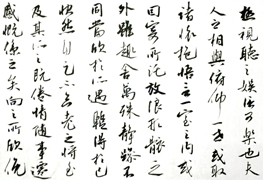 極視聽之娛信可樂也夫
人之相與俯仰一世或取
諸懷抱悟言一室之内或
因寄所託放浪形骸之
外雖趣舍萬殊靜躁不
同當其欣於所遇暫得於己
快然自足不知老之將至
及其所之既倦情隨事遷
感慨係之矣向之所欣俛